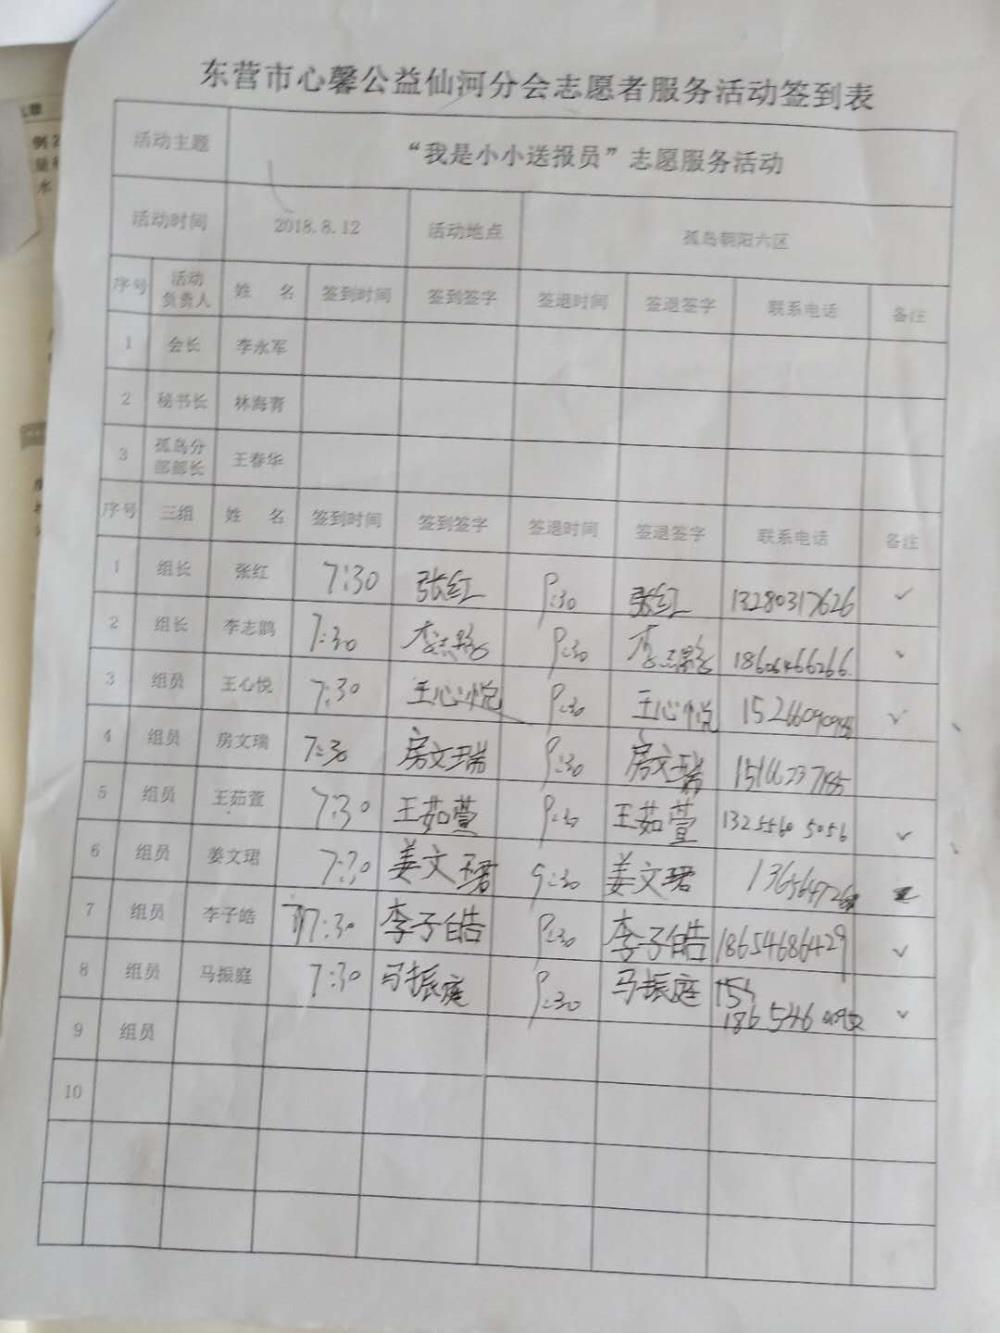 东营市心馨公益仙河分会志愿者服务活动签到表
活动主题 “我是小小送报员”志愿服务活动
活动时间 2018.8.12 活动地点 孤岛朝阳六区
序号 活动负责人 姓名 签到时间 签到签字 签退时间 签退签字 联系电话 备注
1 会长 李永军
2 秘书长 林海青
3 孤岛分部部长 王春华
序号 三组 姓名 签到时间 签到签字 签退时间 签退签字 联系电话 备注
1 组长 张红 7:30 张红 9:30 张红 13280317626 ✓
2 组长 李志鹍 7:30 9:30 18606466266 ✓
3 组员 王心悦 7:30 王心悦 9:30 王心悦 ✓
4 组员 房文瑞 7:30 房文瑞 9:30 房文瑞
5 组员 王茹萱 7:30 王茹萱 9:30 王茹萱 1325560 5056 ✓
6 组员 姜文珺 7:30 姜文珺 9:30 姜文珺
7 组员 李子皓 7:30 李子皓 9:30 李子皓 18654686429 ✓
8 组员 马振庭 7:30 马振庭 9:30 马振庭 ✓
9 组员
10